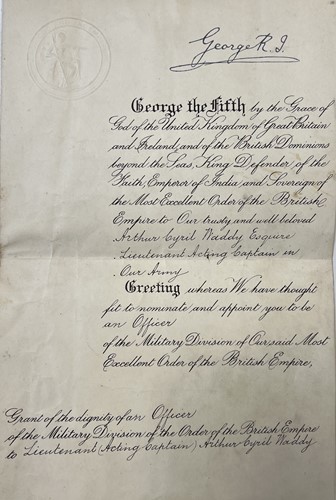 George R. I.
George the Fifth by the Grace of
God of the United Kingdom of Great Britain
and Ireland and of the British Dominions
beyond the Seas, King Defender of the
Faith, Emperor of India and Sovereign of
the Most Excellent Order of the British
Empire to Our trusty and well beloved
Arthur Cyril Waddy Esquire
Lieutenant Acting Captain in
Our Army
Greeting whereas We have thought
fit to nominate and appoint you to be
an Officer
of the Military Division of Our said Most
Excellent Order of the British Empire,
Grant of the dignity of an Officer
of the Military Division of the Order of the British Empire
to Lieutenant (Acting Captain) Arthur Cyril Waddy